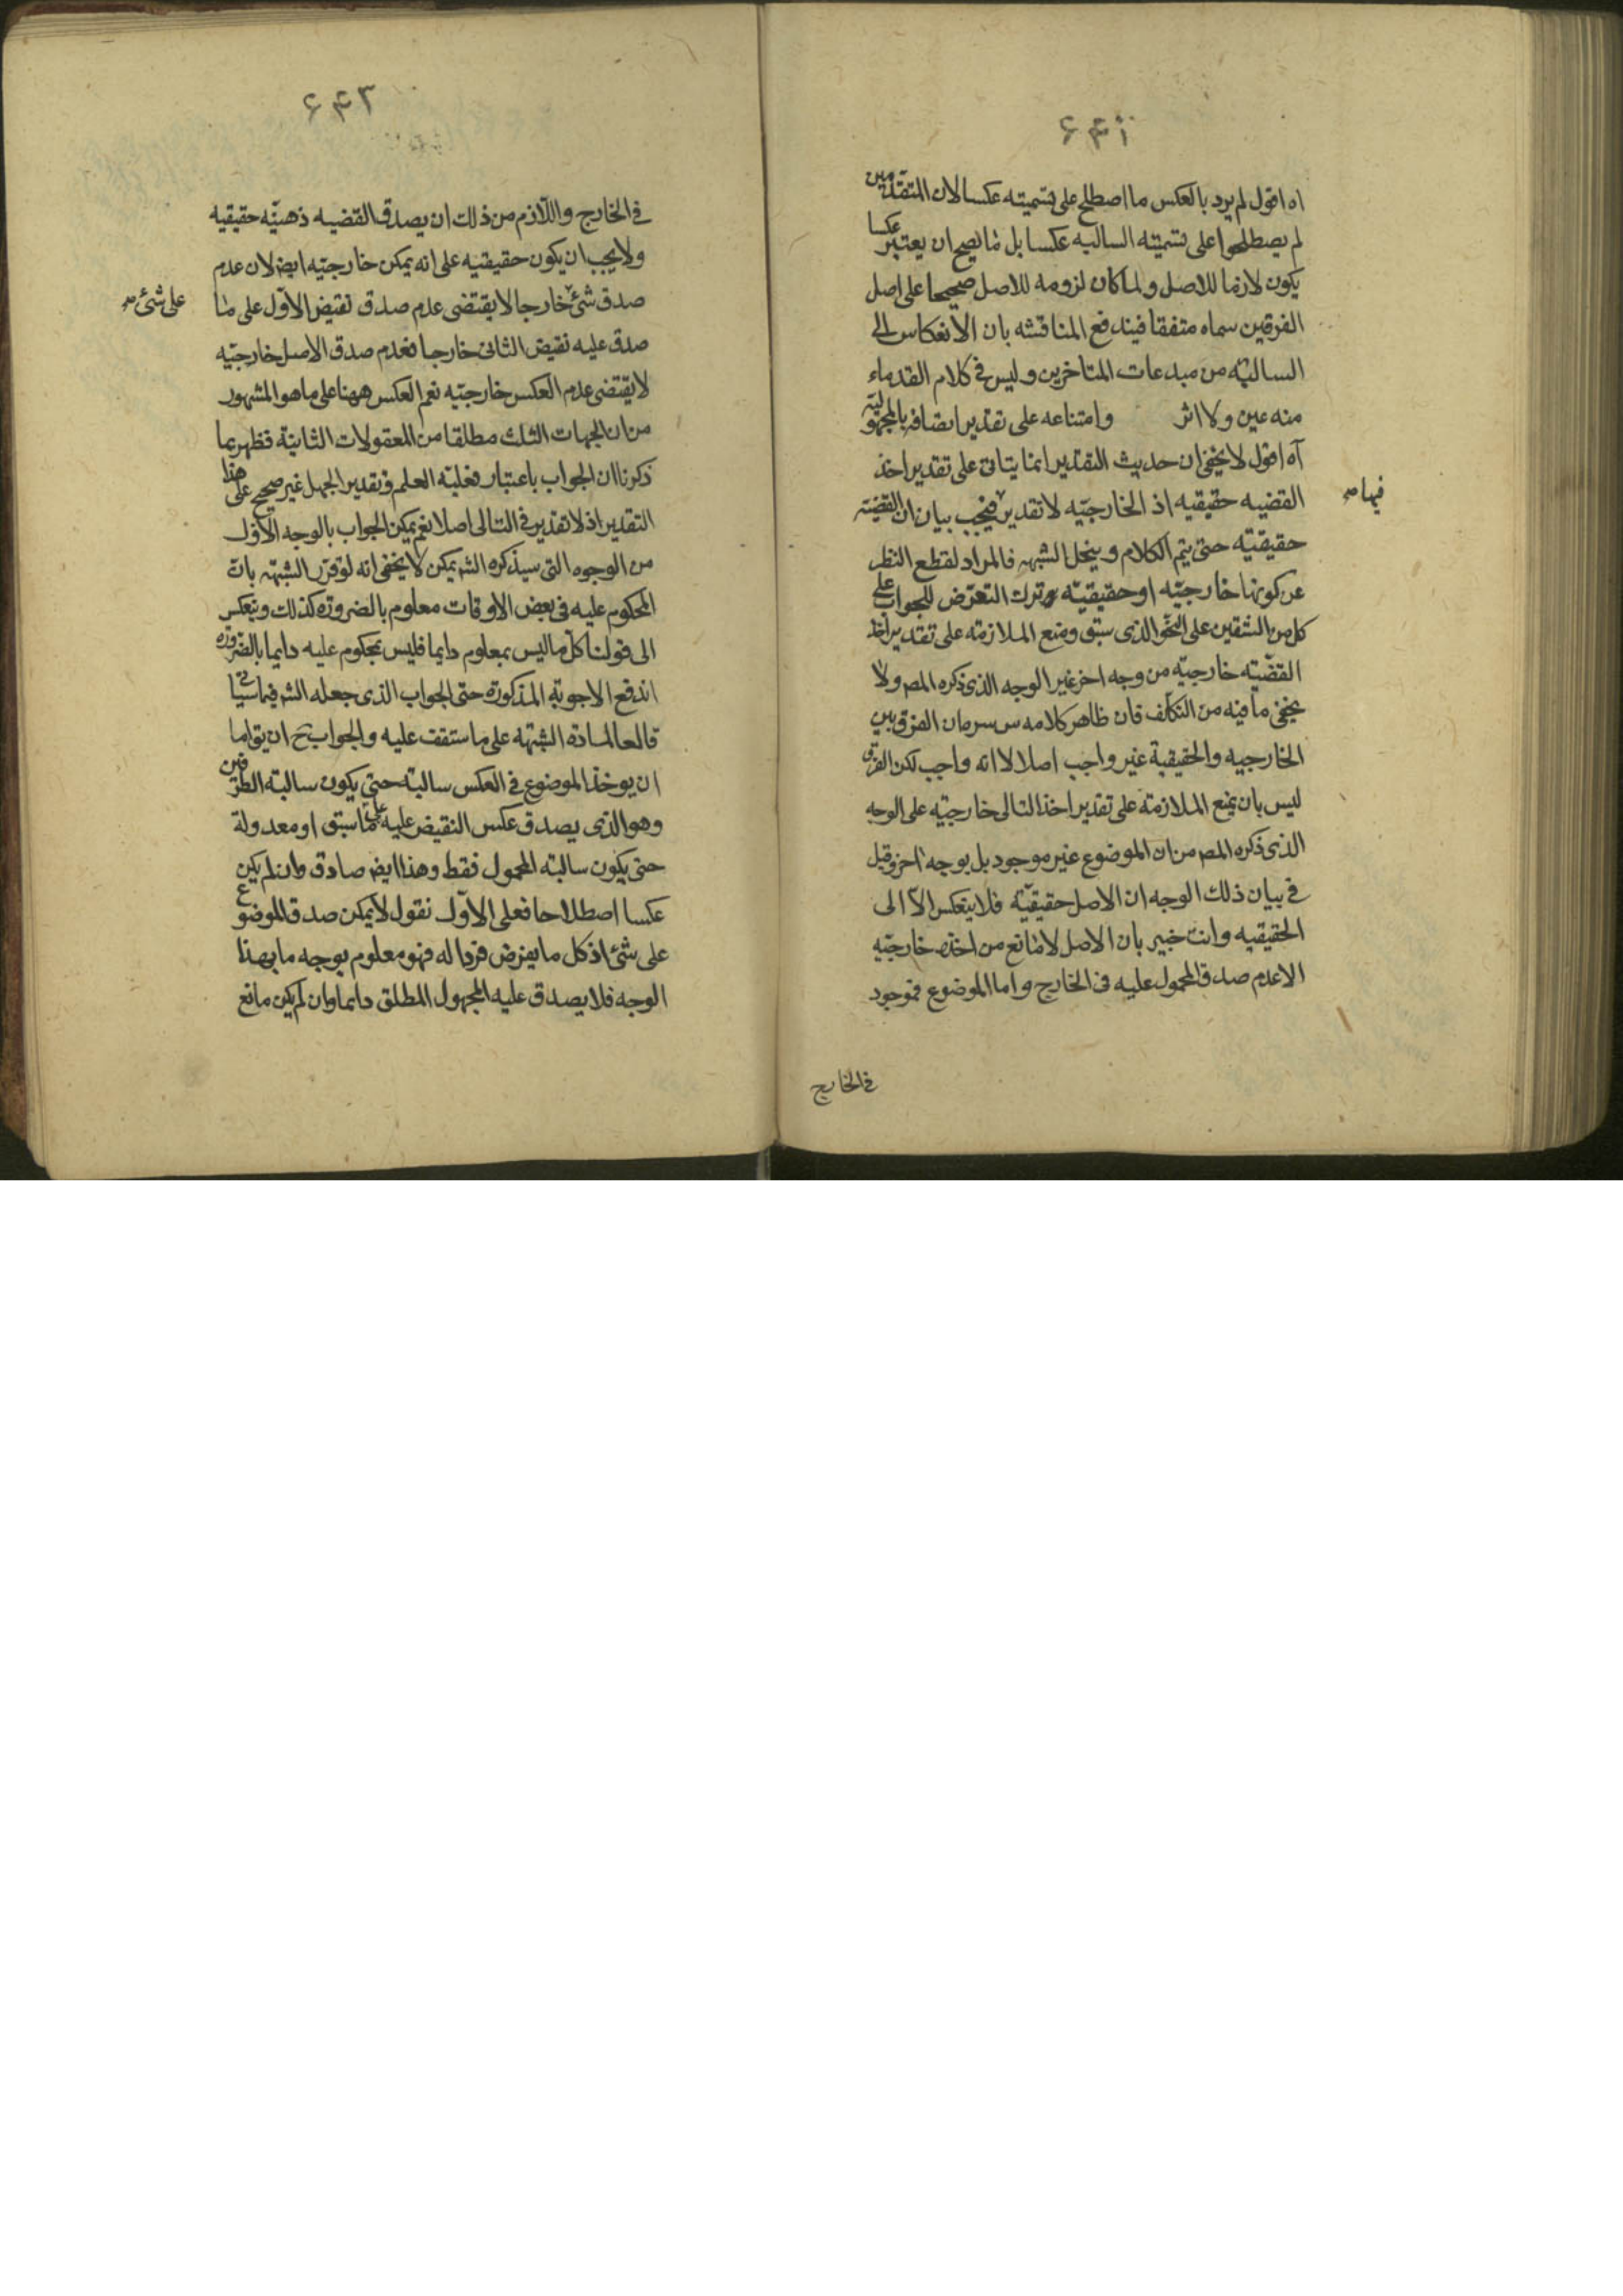 ۶۴۱
اه اقول لم يرد بالعكس ما اصطلح على تسميته عكسا لان المتقدمين
لم يصطلحوا على تسميته السالبه عكسا بل ما يصح ان يعتبر عكسا
يكون لازما للاصل ولما كان لزومه للاصل صحيحا على اصل
الفرقين سماه متفقا فيندفع المناقشه بان الانعكاس الى
السالبة من مبدعات المتاخرين وليس فى كلام القدماء
منه عين ولا اثر وامتناعه على تقدير اتصافه بالمجهولية
آه اقول لا يخفى ان حديث التقدير انما يتاتى على تقدير اخذ
القضيه حقيقيه اذ الخارجيّه لا تقدير فيجب بيان ان القضيّه
فيها صح
حقيقيّه حتى يتم الكلام وينحل الشبهه فالمراد لقطع النظر
عن كونها خارجيّه او حقيقيّه وترك التعرّض للجواب على
كل من الشقين على النحو الذى سبق ومنع الملازمة على تقدير اخذ
القضيّه خارجيّه من وجه اخر غير الوجه الذى ذكره المص ولا
يخفى ما فيه من التكلف فان ظاهر كلامه الفرق بين
الخارجيه والحقيقية غير واجب اصلا لا انه واجب لكن الفرق
ليس بان يمنع الملازمة على تقدير اخذ التالى خارجيّه على الوجه
الذى ذكره المص من ان الموضوع غير موجود بل بوجه اخر وقيل
فى بيان ذلك الوجه ان الاصل حقيقيّة فلا ينعكس الّا الى
الحقيقيه وانت خبير بان الاصل لا مانع من اخذه خارجيّه
الا عدم صدق المحمول عليه فى الخارج واما الموضوع فموجود
فى الخارج
۶۴۲
فى الخارج واللازم من ذلك ان يصدق القضيه ذهنيّه حقيقيه
ولا يجب ان يكون حقيقيه على انه يمكن خارجيّه ايض لان عدم
صدق شئ خارجا لا يقتضى عدم صدق نقيض الاوّل على ما
على شئ صح
صدق عليه نقيض الثانى خارجا فعدم صدق الاصل خارجيّه
لا يقتضى عدم العكس خارجيّه نعم العكس ههنا على ما هو المشهور
من ان الجهات الثلث مطلقا من المعقولات الثانية فظهر بما
ذكرنا ان الجواب باعتبار فعلية العلم وتقدير الجهل غير صحيح على هذا
التقدير اذ لا تقدير فى التالى اصلا نعم يمكن الجواب بالوجه الاوّل
من الوجوه التى سيذكره الش يمكن لا يخفى انه لو قرّر الشبهه بان
المحكوم عليه فى بعض الاوقات معلوم بالضرورة كذلك وينعكس
الى قولنا كل ما ليس بمعلوم دايما فليس بمحكوم عليه دايما بالضرورة
اندفع الاجوبة المذكورة حتى الجواب الذى جعله الش فيما سياتى
قالعا لمادة الشبهه على ما ستقف عليه والجواب ح ان يق اما
ان يوخذ الموضوع فى العكس سالبة حتى يكون سالبة الطرفين
وهو الذى يصدق عكس النقيض عليه على ما سبق او معدولة
حتى يكون سالبة المحمول فقط وهذا ايض صادق وان لم يكن
عكسا اصطلاحا فعلى الاوّل نقول لا يمكن صدق الموضوع
على شئ اذ كل ما يفرض فردا له فهو معلوم بوجه ما بهذا
الوجه فلا يصدق عليه المجهول المطلق دايما وان لم يكن مانع